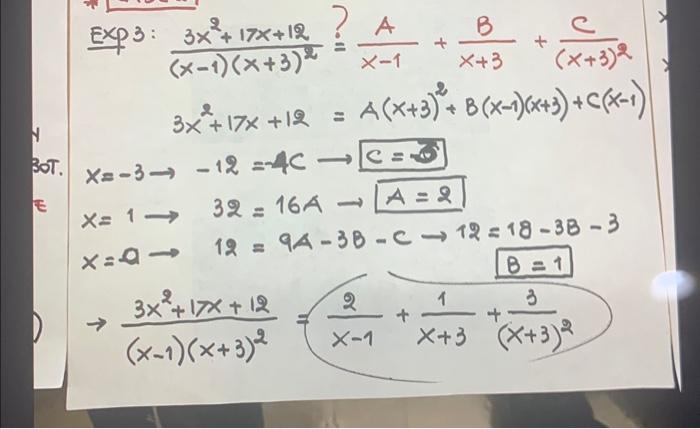 Exp 3: (3x²+17x+12)/((x-1)(x+3)²) =? A/(x-1) + B/(x+3) + C/(x+3)²
3x²+17x+12 = A(x+3)²+B(x-1)(x+3)+C(x-1)
BOT.
x=-3 → -12 = -4C → C = 3
x= 1 → 32 = 16A → A = 2
x=0 → 12 = 9A-3B-C → 12 = 18-3B-3
B = 1
→ (3x²+17x+12)/((x-1)(x+3)²) = 2/(x-1) + 1/(x+3) + 3/(x+3)²